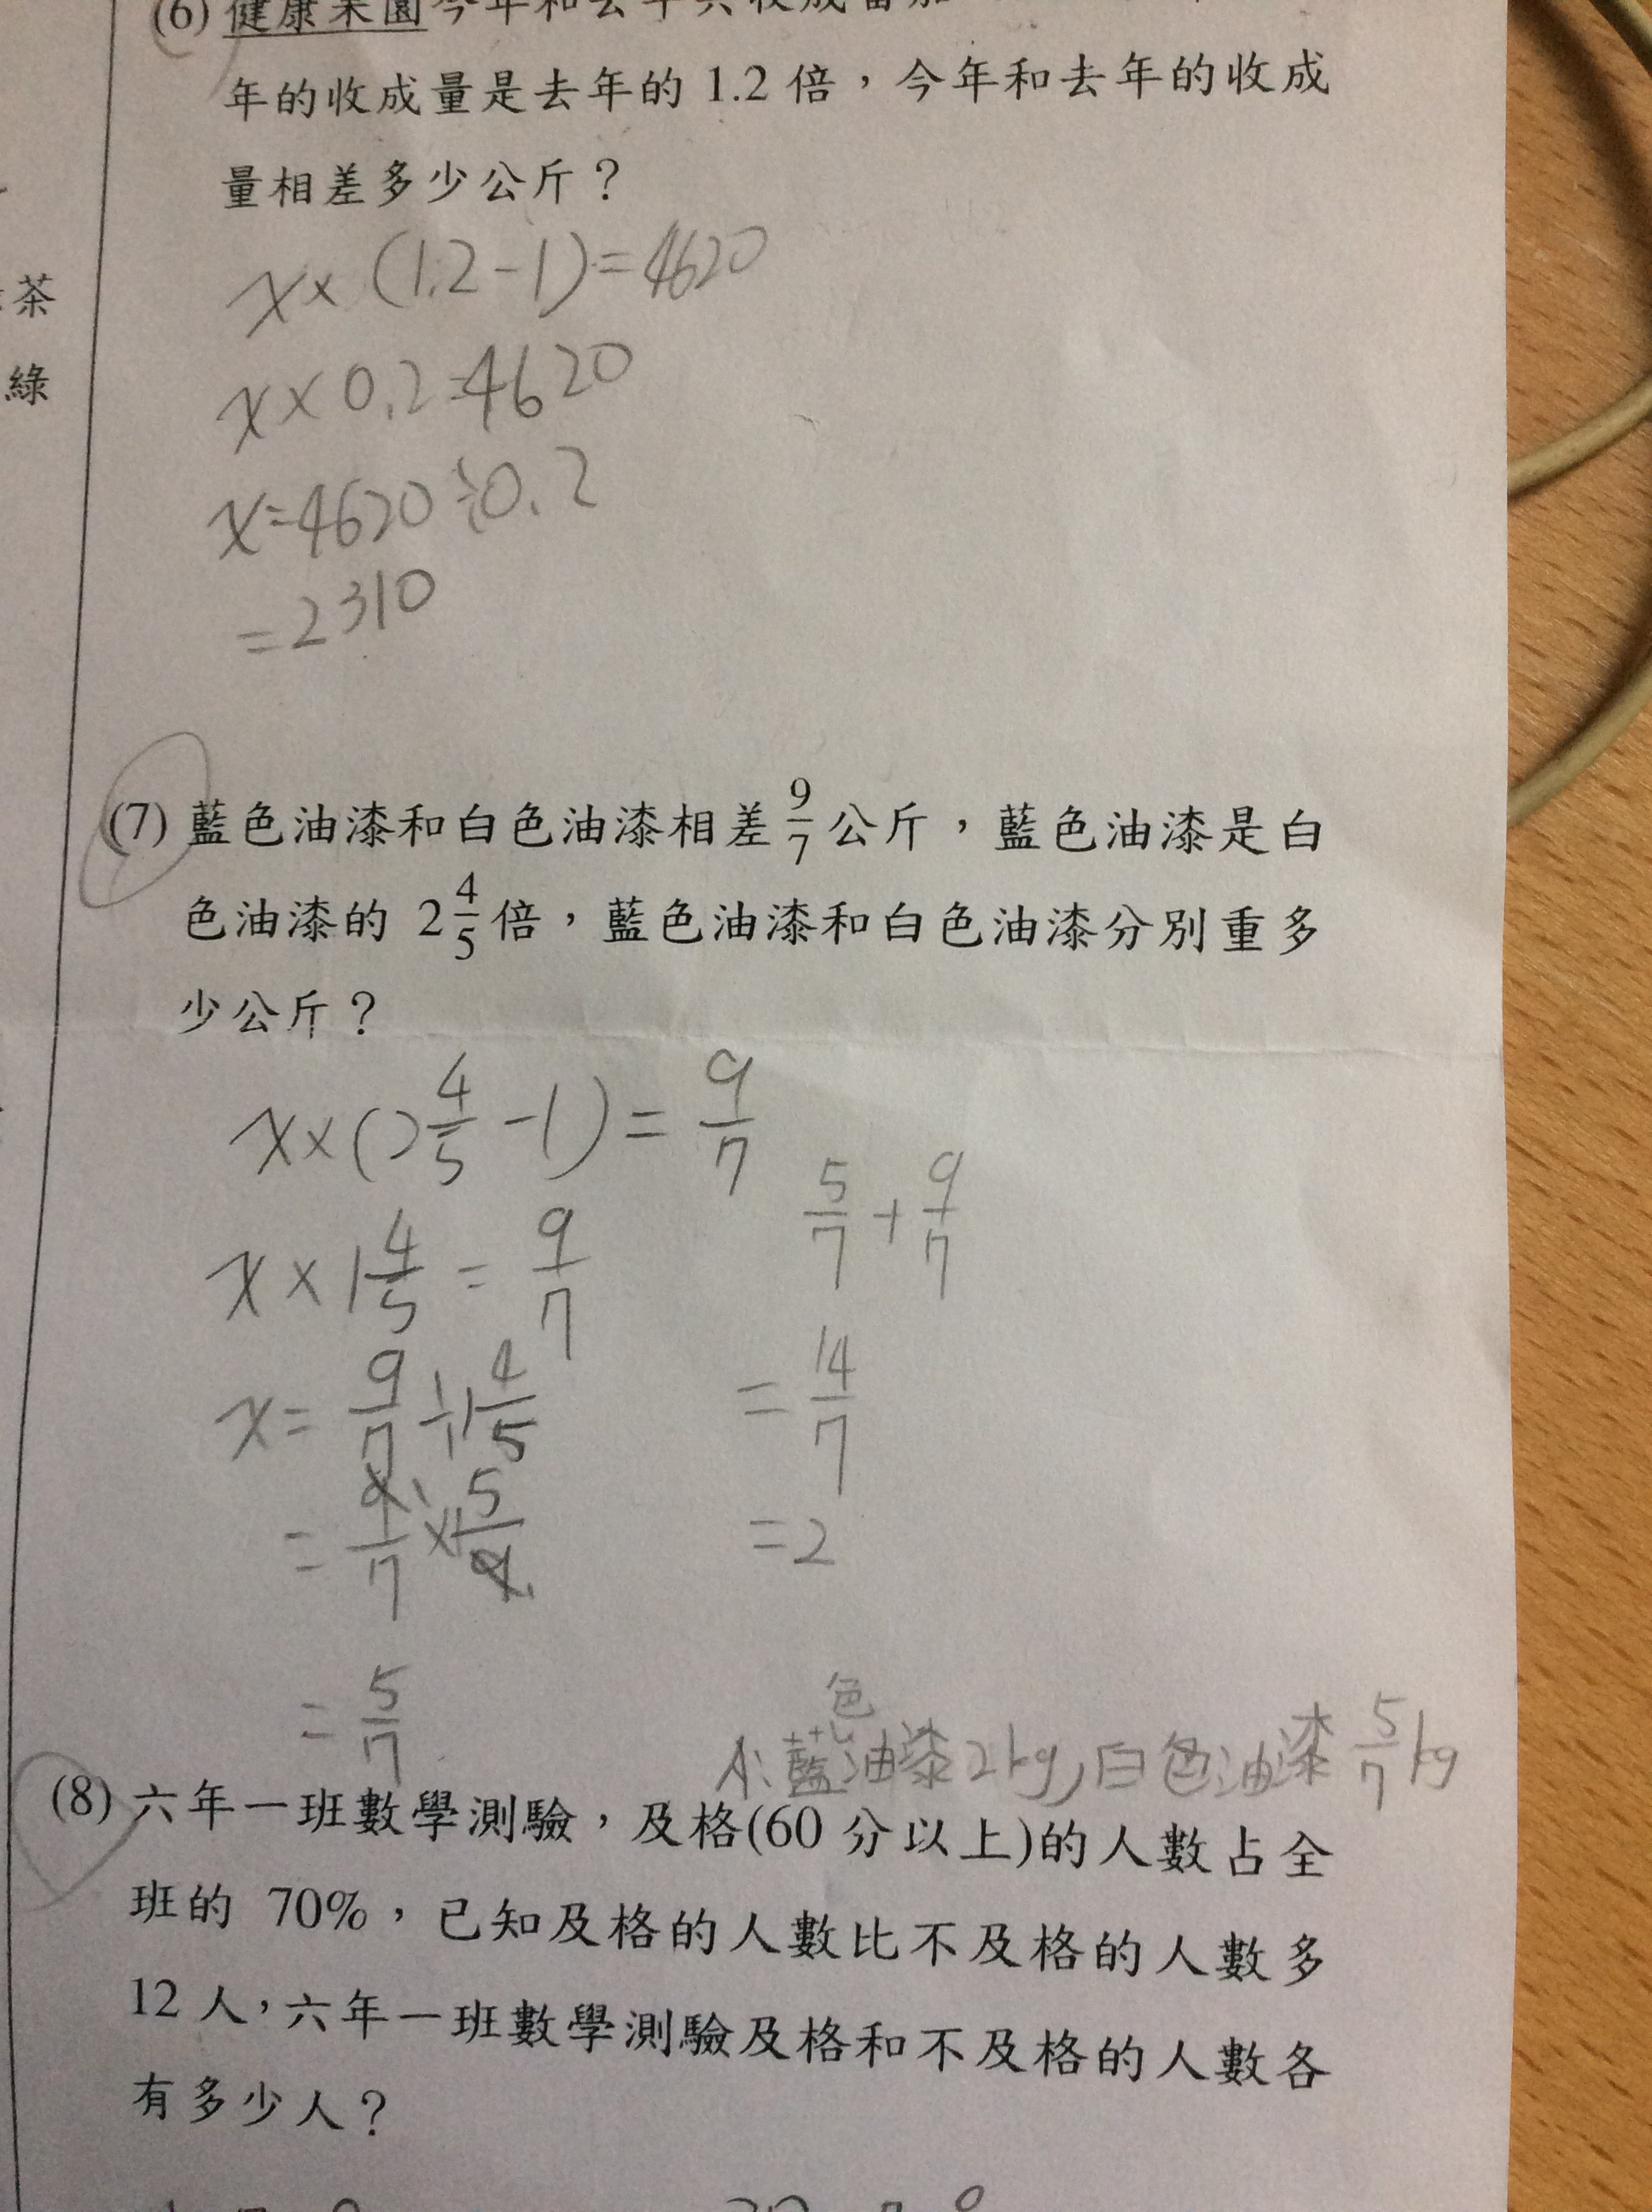 (6) 健康果園今年和去年共收成番茄
年的收成量是去年的 1.2 倍，今年和去年的收成
量相差多少公斤？
x×(1.2-1)=4620
x×0.2=4620
x=4620÷0.2
=2310
(7) 藍色油漆和白色油漆相差 9/7 公斤，藍色油漆是白
色油漆的 2 4/5 倍，藍色油漆和白色油漆分別重多
少公斤？
x×(2 4/5 -1)= 9/7
x×1 4/5 = 9/7
x= 9/7 ÷1 4/5
= 9/7 × 5/9
= 5/7
5/7 + 9/7
= 14/7
=2
A:藍色油漆2kg,白色油漆 5/7 kg
(8) 六年一班數學測驗，及格(60 分以上)的人數占全
班的 70%，已知及格的人數比不及格的人數多
12 人，六年一班數學測驗及格和不及格的人數各
有多少人？
茶
綠